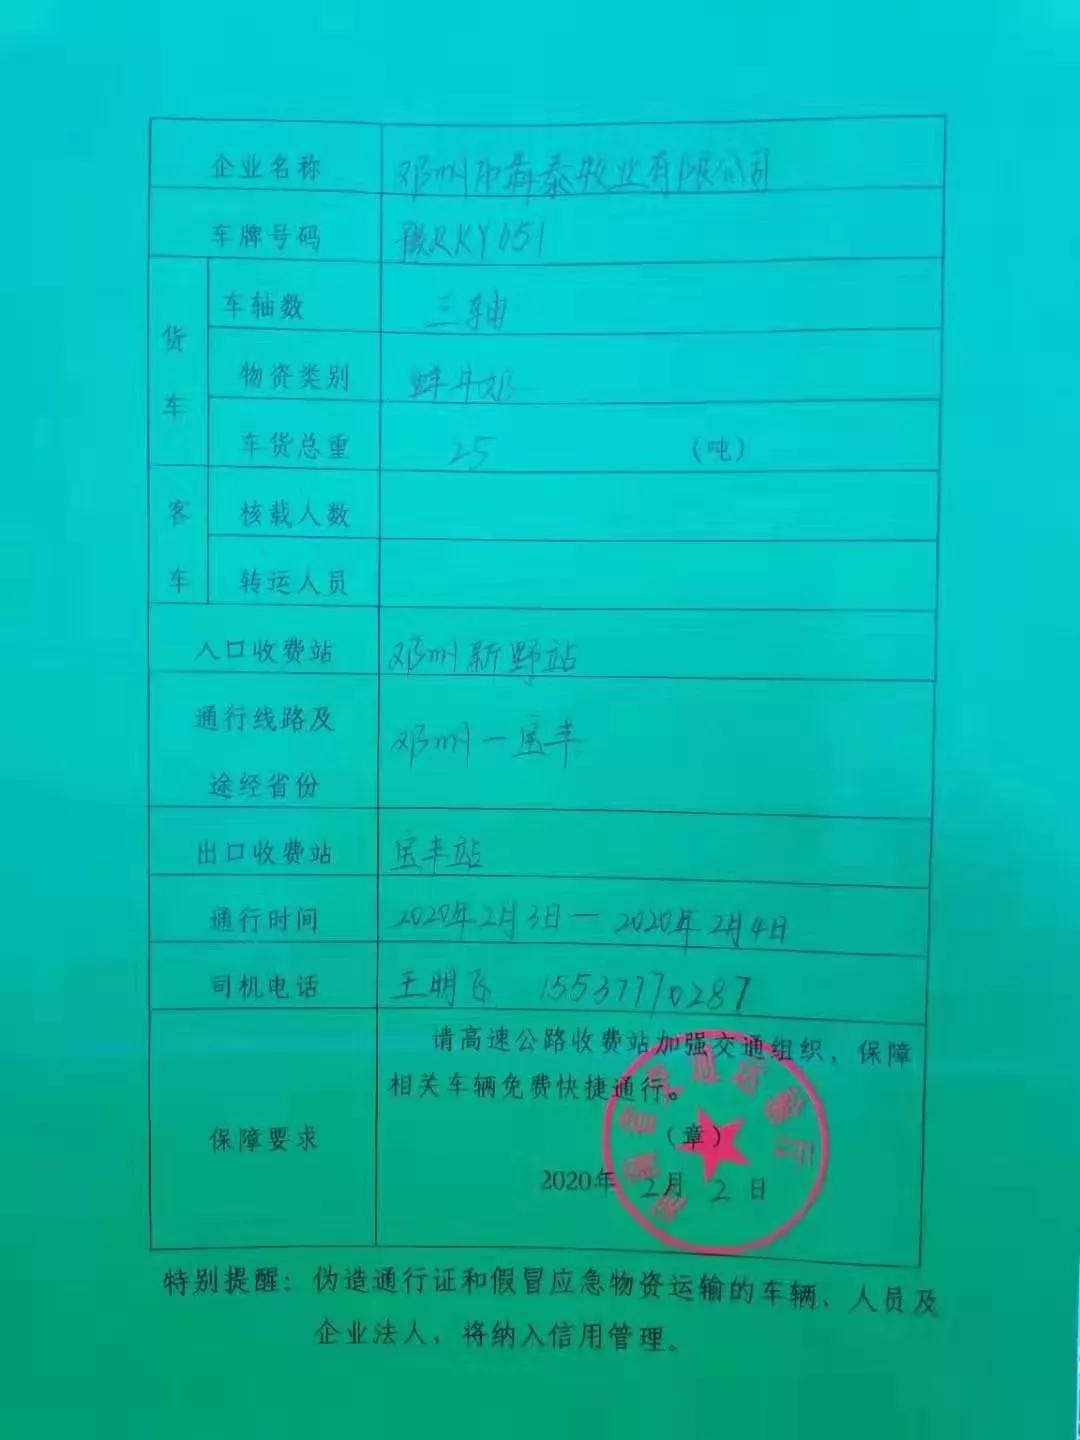 企业名称 邓州市犇泰牧业有限公司
车牌号码 豫RKY051
货车
车轴数 三轴
物资类别
车货总重 25 (吨)
客车
核载人数
转运人员
入口收费站 邓州新野站
通行线路及
途经省份
邓州一宝丰
出口收费站 宝丰站
通行时间 2020年2月3日一2020年2月4日
司机电话 王明飞 15537770287
保障要求
请高速公路收费站加强交通组织,保障
相关车辆免费快捷通行。
(章)
2020年2月2日
省交通运输厅
特别提醒:伪造通行证和假冒应急物资运输的车辆、人员及
企业法人,将纳入信用管理。